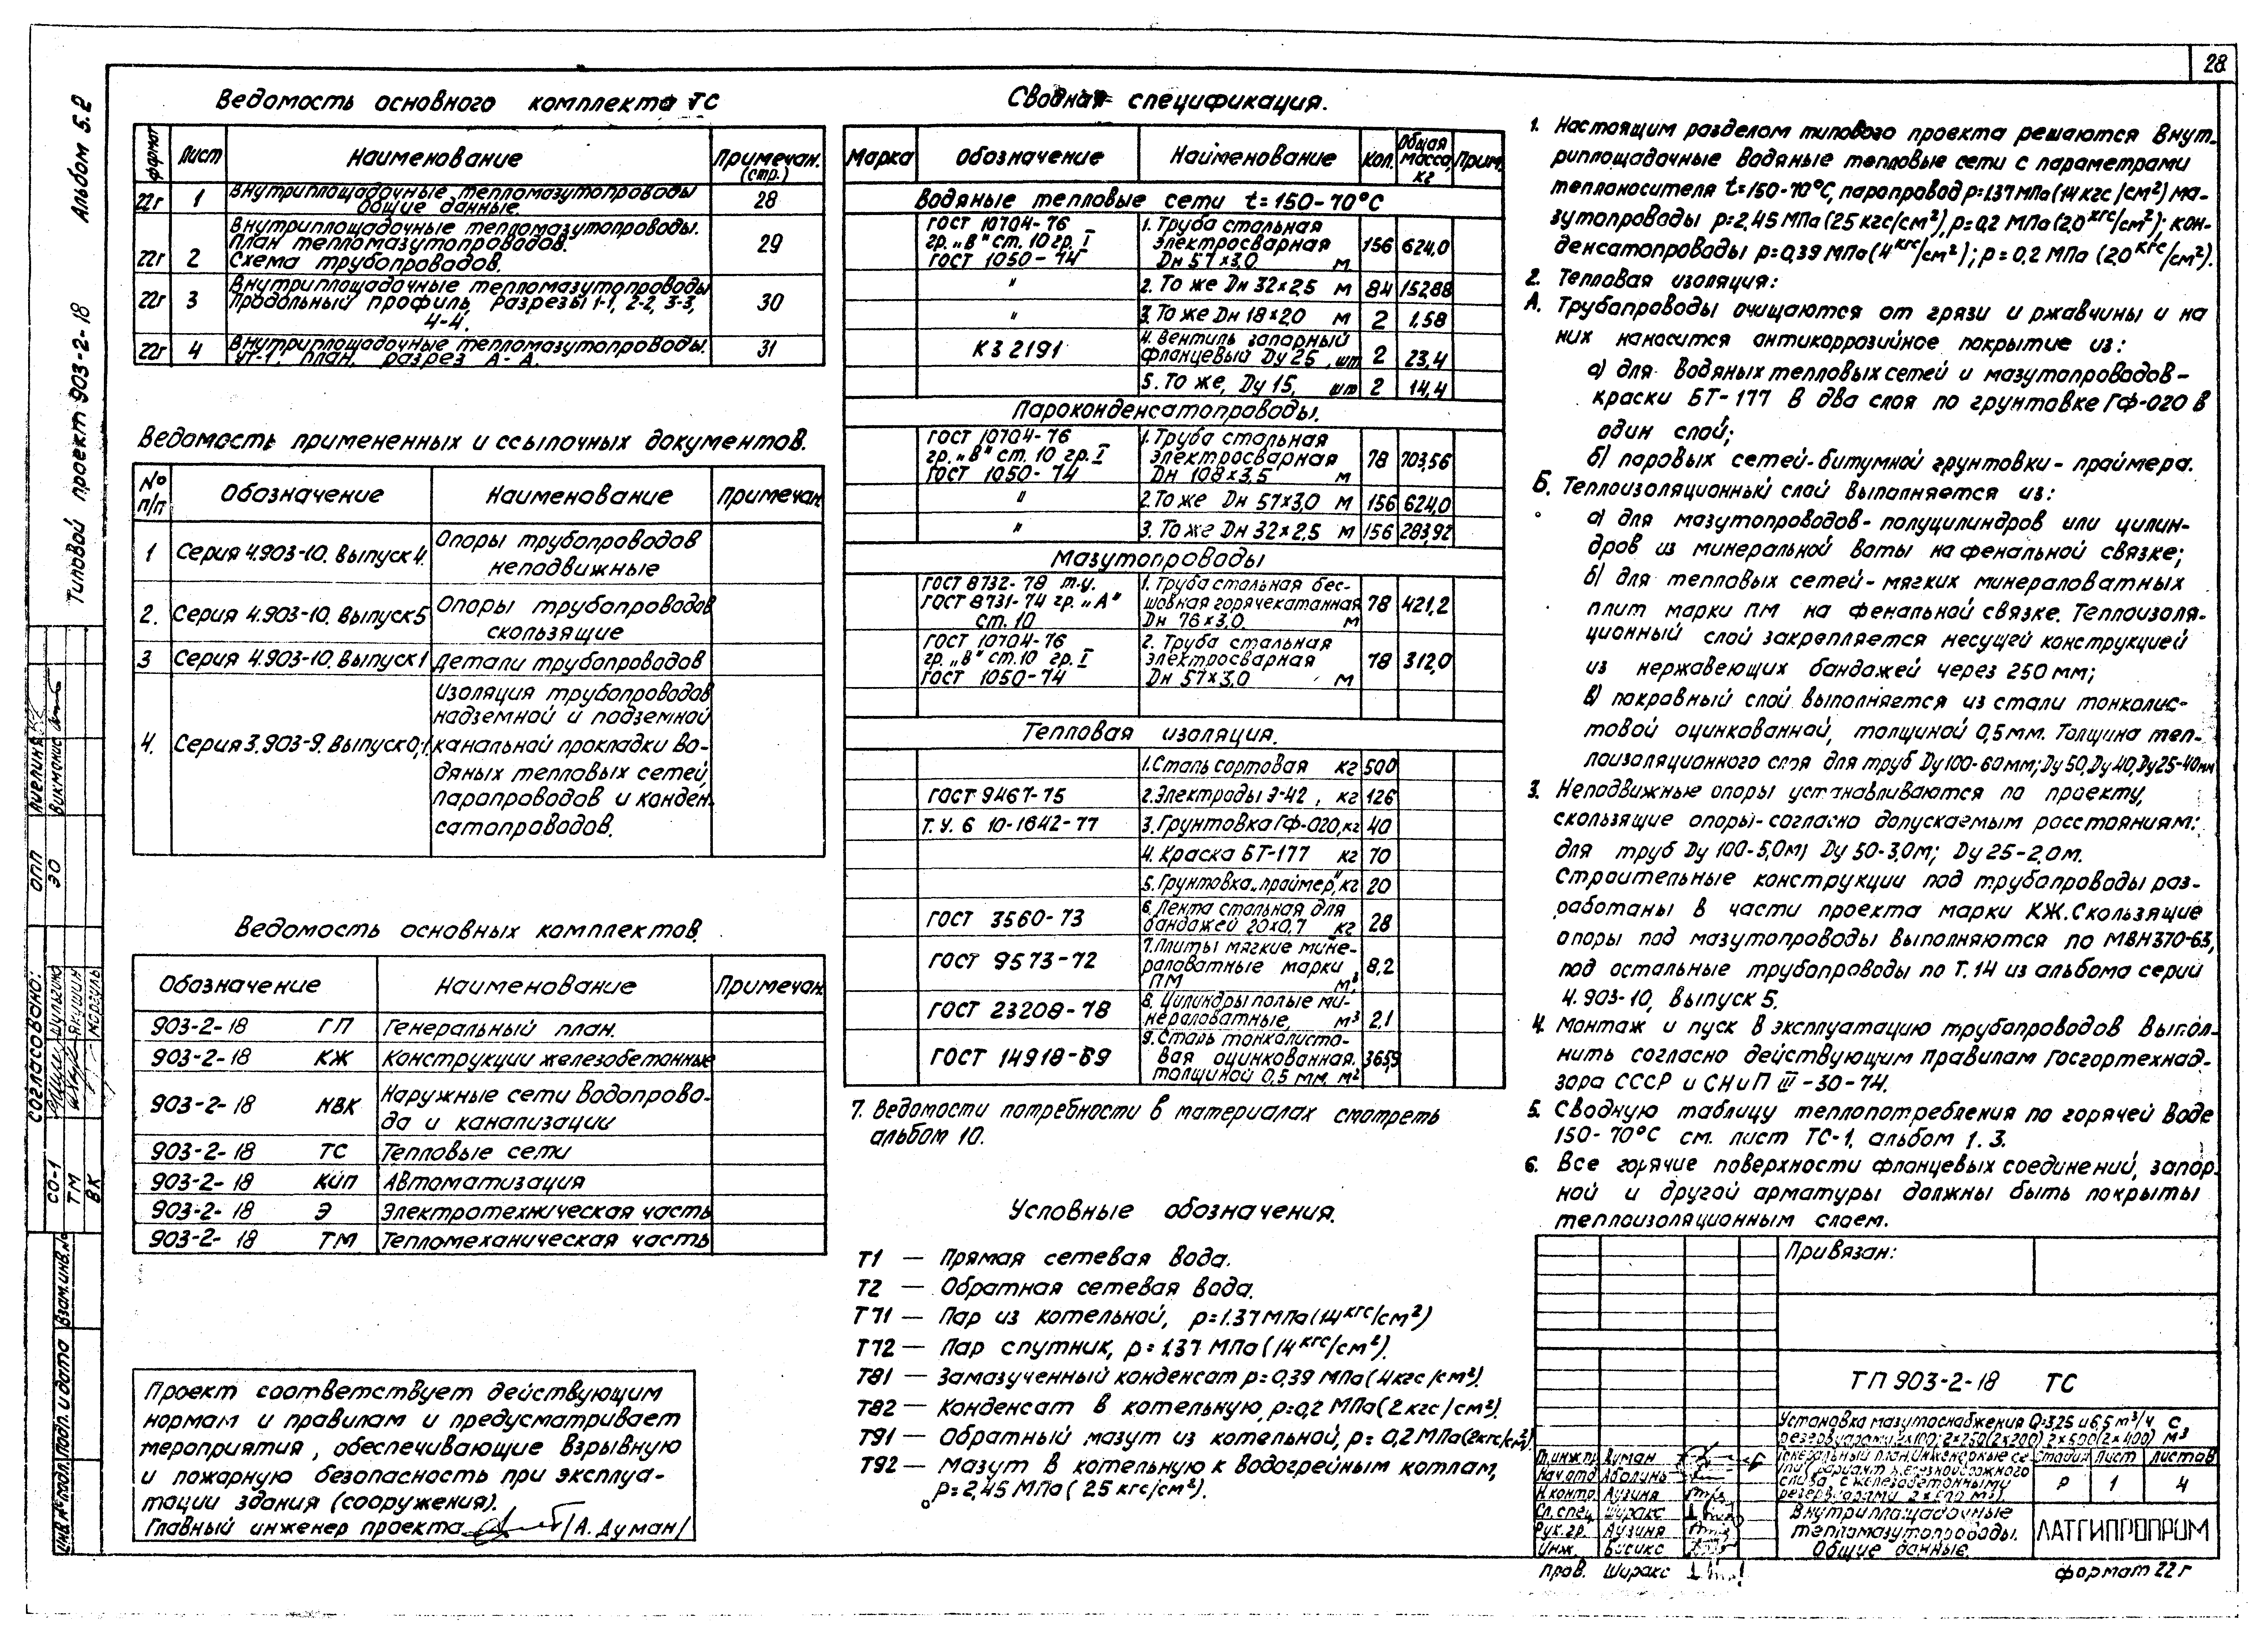 28
Альбом 5.2
Типовой проект 903-2-18
Ведомость основного комплекта ТС
формат
Лист
Наименование
Примечан. (стр.)
22г 1 Внутриплощадочные тепломазутопроводы 28
Общие данные.
Внутриплощадочные тепломазутопроводы.
План тепломазутопроводов. 29
22г 2 Схема трубопроводов.
Внутриплощадочные тепломазутопроводы
22г 3 Продольный профиль, разрезы 1-1, 2-2, 3-3, 30
4-4.
22г 4 Внутриплощадочные тепломазутопроводы. 31
УТ-1, план, разрез А-А.
Ведомость примененных и ссылочных документов.
№ п/п
Обозначение
Наименование
Примечан.
1 Серия 4.903-10. Выпуск 4. Опоры трубопроводов
неподвижные
2. Серия 4.903-10. Выпуск 5 Опоры трубопроводов
скользящие
3 Серия 4.903-10. Выпуск 1 Детали трубопроводов
Изоляция трубопроводов
надземной и подземной
4. Серия 3.903-9. Выпуск 0;1 канальной прокладки во-
дяных тепловых сетей,
паропроводов и конден-
сатопроводов.
Ведомость основных комплектов.
Обозначение
Наименование
Примечан.
903-2-18 ГП Генеральный план.
903-2-18 КЖ Конструкции железобетонные
903-2-18 НВК Наружные сети водопрово-
да и канализации
903-2-18 ТС Тепловые сети
903-2-18 КИП Автоматизация
903-2-18 Э Электротехническая часть
903-2-18 ТМ Тепломеханическая часть
Проект соответствует действующим
нормам и правилам и предусматривает
мероприятия, обеспечивающие взрывную
и пожарную безопасность при эксплуа-
тации здания (сооружения).
Главный инженер проекта /А. Думан/
Сводная спецификация.
Марка
Обозначение
Наименование
Кол.
Общая масса, кг
Прим.
Водяные тепловые сети t=150-70°С
ГОСТ 10704-76 1. Труба стальная
гр. „В" ст. 10 гр. I электросварная 156 624,0
ГОСТ 1050-74 Dн 57×3,0 м
" 2. То же Dн 32×2,5 м 84 152,88
" 3. То же Dн 18×2,0 м 2 1,58
КЗ 2191 4. Вентиль запорный
фланцевый Dу 25, шт 2 23,4
5. То же, Dу 15, шт 2 14,4
Пароконденсатопроводы.
ГОСТ 10704-76 1. Труба стальная
гр. „В" ст. 10 гр. I электросварная 78 703,56
ГОСТ 1050-74 Dн 108×3,5 м
" 2. То же Dн 57×3,0 м 156 624,0
" 3. То же Dн 32×2,5 м 156 283,92
Мазутопроводы
ГОСТ 8732-78 т.у. 1. Труба стальная бес-
ГОСТ 8731-74 гр. „А" шовная горячекатанная 78 421,2
ст. 10 Dн 76×3,0. м
ГОСТ 10704-76 2. Труба стальная
гр. „В" ст. 10 гр. I электросварная 78 312,0
ГОСТ 1050-74 Dн 57×3,0 м
Тепловая изоляция.
1. Сталь сортовая кг 500
ГОСТ 9467-75 2. Электроды Э-42, кг 126
Т.У. 6 10-1642-77 3. Грунтовка ГФ-020, кг 40
4. Краска БТ-177 кг 70
5. Грунтовка „праймер", кг 20
ГОСТ 3560-73 6. Лента стальная для
бандажей 20×0,7 кг 28
7. Плиты мягкие мине-
ГОСТ 9573-72 раловатные марки 8,2
ПМ м³
ГОСТ 23208-78 8. Цилиндры полые ми-
нераловатные, м³ 2,1
9. Сталь тонколисто-
ГОСТ 14918-69 вая оцинкованная. 365,9
толщиной 0,5 мм. м²
7. Ведомости потребности в материалах смотреть
альбом 10.
Условные обозначения.
Т1 — Прямая сетевая вода.
Т2 — Обратная сетевая вода.
Т71 — Пар из котельной, р=1.37 МПа (14 кгс/см²)
Т72 — Пар спутник, р=1.37 МПа (14 кгс/см²).
Т81 — Замазученный конденсат р=0,39 МПа (4 кгс/см²).
Т82 — Конденсат в котельную, р=0,2 МПа (2 кгс/см²).
Т91 — Обратный мазут из котельной, р=0,2 МПа (2 кгс/см²)
Т92 — Мазут в котельную к водогрейным котлам,
р=2,45 МПа (25 кгс/см²).
1. Настоящим разделом типового проекта решаются внут-
риплощадочные водяные тепловые сети с параметрами
теплоносителя t=150-70°С, паропровод р=1.37 МПа (14 кгс/см²) ма-
зутопроводы р=2,45 МПа (25 кгс/см²), р=0,2 МПа (2,0 кгс/см²); кон-
денсатопроводы р=0,39 МПа (4 кгс/см²); р=0,2 МПа (2,0 кгс/см²).
2. Тепловая изоляция:
А. Трубопроводы очищаются от грязи и ржавчины и на
них наносится антикоррозийное покрытие из:
а) для водяных тепловых сетей и мазутопроводов-
краски БТ-177 в два слоя по грунтовке ГФ-020 в
один слой;
б) паровых сетей-битумной грунтовки-праймера.
Б. Теплоизоляционный слой выполняется из:
а) для мазутопроводов-полуцилиндров или цилин-
дров из минеральной ваты на фенальной связке;
б) для тепловых сетей-мягких минераловатных
плит марки ПМ на фенальной связке. Теплоизоля-
ционный слой закрепляется несущей конструкцией
из нержавеющих бандажей через 250 мм;
в) покровный слой выполняется из стали тонколис-
товой оцинкованной, толщиной 0,5 мм. Толщина теп-
лоизоляционного слоя для труб Dу 100-60 мм; Dу 50, Dу 40, Dу 25-40 мм
3. Неподвижные опоры устанавливаются по проекту,
скользящие опоры-согласно допускаемым расстояниям:
для труб Dу 100-5,0м; Dу 50-3,0м; Dу 25-2,0м.
Строительные конструкции под трубопроводы раз-
работаны в части проекта марки КЖ. Скользящие
опоры под мазутопроводы выполняются по МВН 370-63,
под остальные трубопроводы по Т.14 из альбома серий
4.903-10, выпуск 5.
4. Монтаж и пуск в эксплуатацию трубопроводов выпол-
нить согласно действующим правилам Госгортехнад-
зора СССР и СНиП III-30-74.
5. Сводную таблицу теплопотребления по горячей воде
150-70°С см. лист ТС-1, альбом 1.3.
6. Все горячие поверхности фланцевых соединений, запор-
ной и другой арматуры должны быть покрыты
теплоизоляционным слоем.
Привязан:
ТП 903-2-18 ТС
Установка мазутоснабжения Q=3,25 и 6,5 м³/ч с
резервуарами 2×100; 2×250 (2×200) 2×500 (2×400) м³
Гл.инж.пр. Думан
Нач.отд. Аболинь
Н.контр. Аузиня
Гл.спец. Ширакс
Рук.гр. Аузиня
Инж. Бисикс
Пров. Ширакс
Генеральный план, инженерные се-
ти (вариант железнодорожного
слива с железобетонными
резервуарами 2×500 м³).
Стадия Лист Листов
Р 1 4
Внутриплощадочные
тепломазутопроводы.
Общие данные.
ЛАТГИПРОПРОМ
формат 22г
Согласовано:
ОПП Лиелиня
ЭО Викманис
СО-1
ТМ Якушин
ВК Моргуль
Взам.инв.№
Подп. и дата
Инв.№ подл.